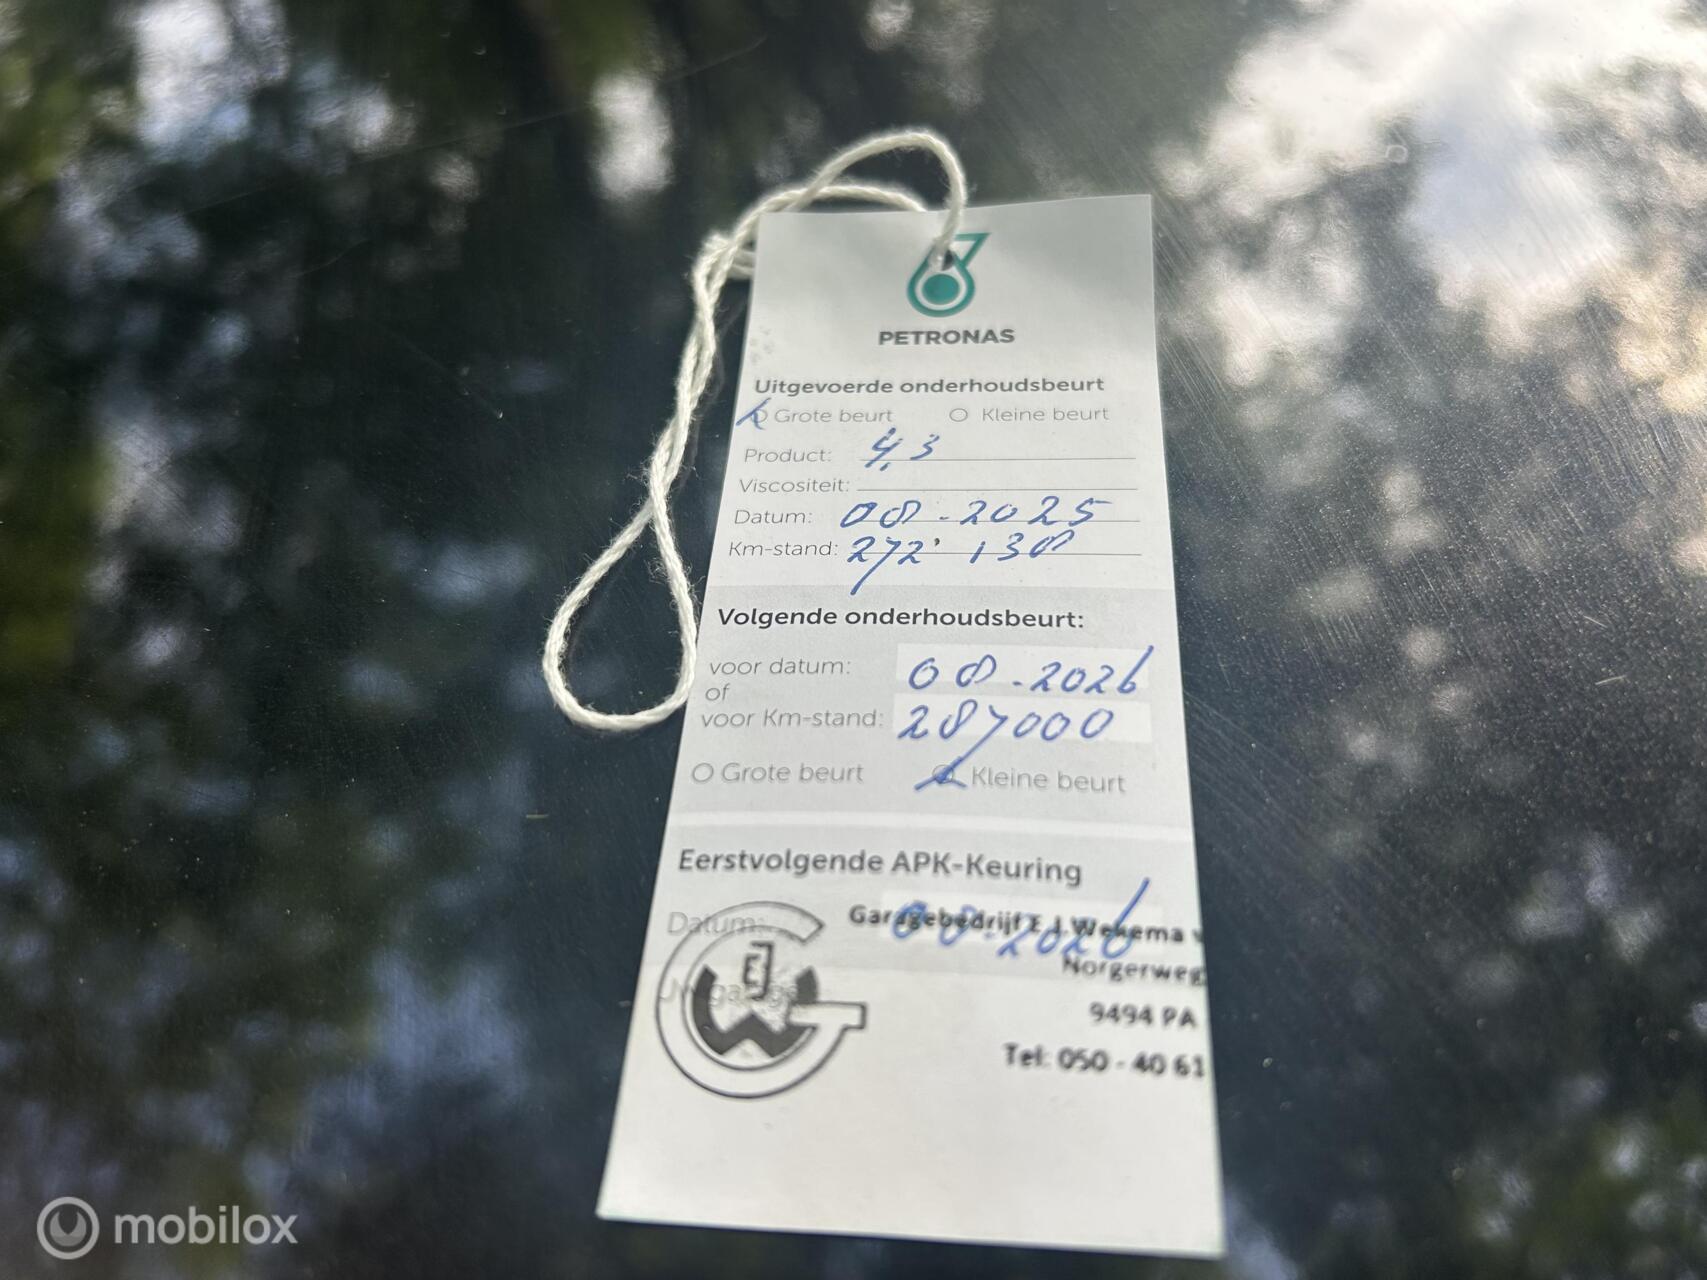 PETRONAS
Uitgevoerde onderhoudsbeurt
Grote beurt Kleine beurt
Product: 4,3
Viscositeit:
Datum: 08-2025
Km-stand: 272'138
Volgende onderhoudsbeurt:
voor datum: 08-2026
of
voor Km-stand: 287000
Grote beurt Kleine beurt
Eerstvolgende APK-Keuring
Datum: 08-2026
Garagebedrijf E.J. Wekema v
Norgerweg
9494 PA
Tel: 050 - 40 61
mobilox